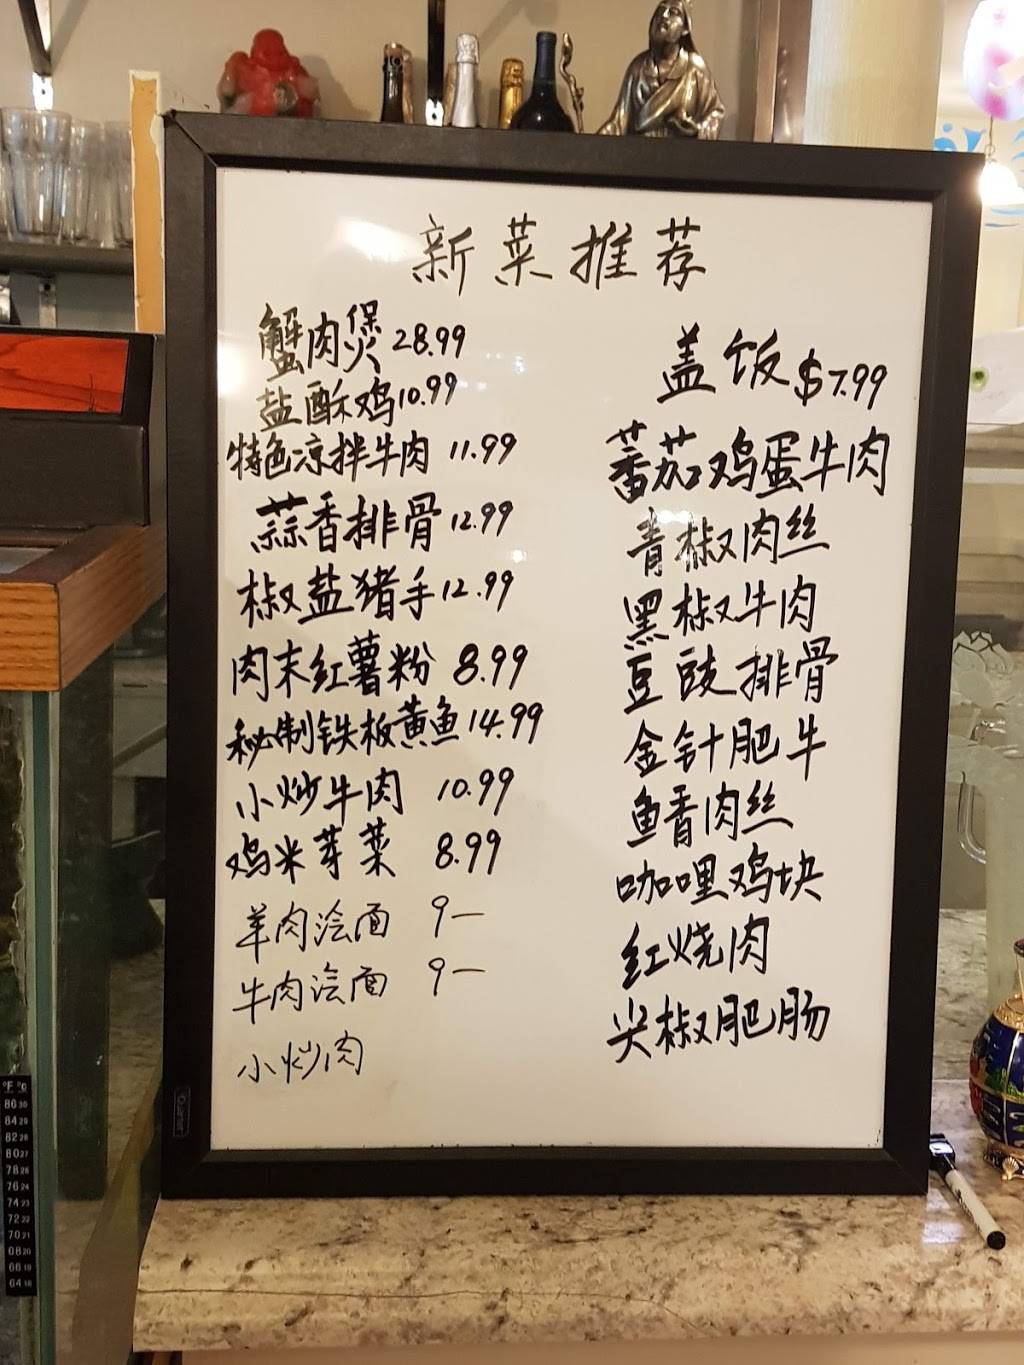 新菜推荐
蟹肉煲 28.99
盐酥鸡 10.99
特色凉拌牛肉 11.99
蒜香排骨 12.99
椒盐猪手 12.99
肉末红薯粉 8.99
秘制铁板黄鱼 14.99
小炒牛肉 10.99
鸡米芽菜 8.99
羊肉浍面 9—
牛肉浍面 9—
小炒肉
盖饭 $7.99
蕃茄鸡蛋牛肉
青椒肉丝
黑椒牛肉
豆豉排骨
金针肥牛
鱼香肉丝
咖哩鸡块
红烧肉
尖椒肥肠
Quartet
°F °C
86 30
84 29
82 28
80 27
78 26
76 24
74 23
72 22
70 21
68 20
66 19
64 18